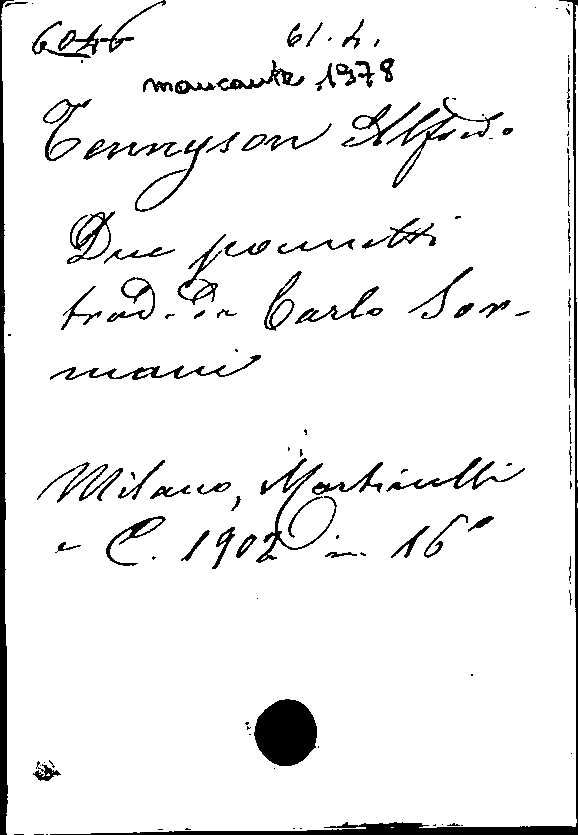 6046 61.L.
mancante 1978
Tennyson Alfredo
Due poemetti
trad. da Carlo Sor-
mani
Milano, Martinelli
e C. 1902 in 16°